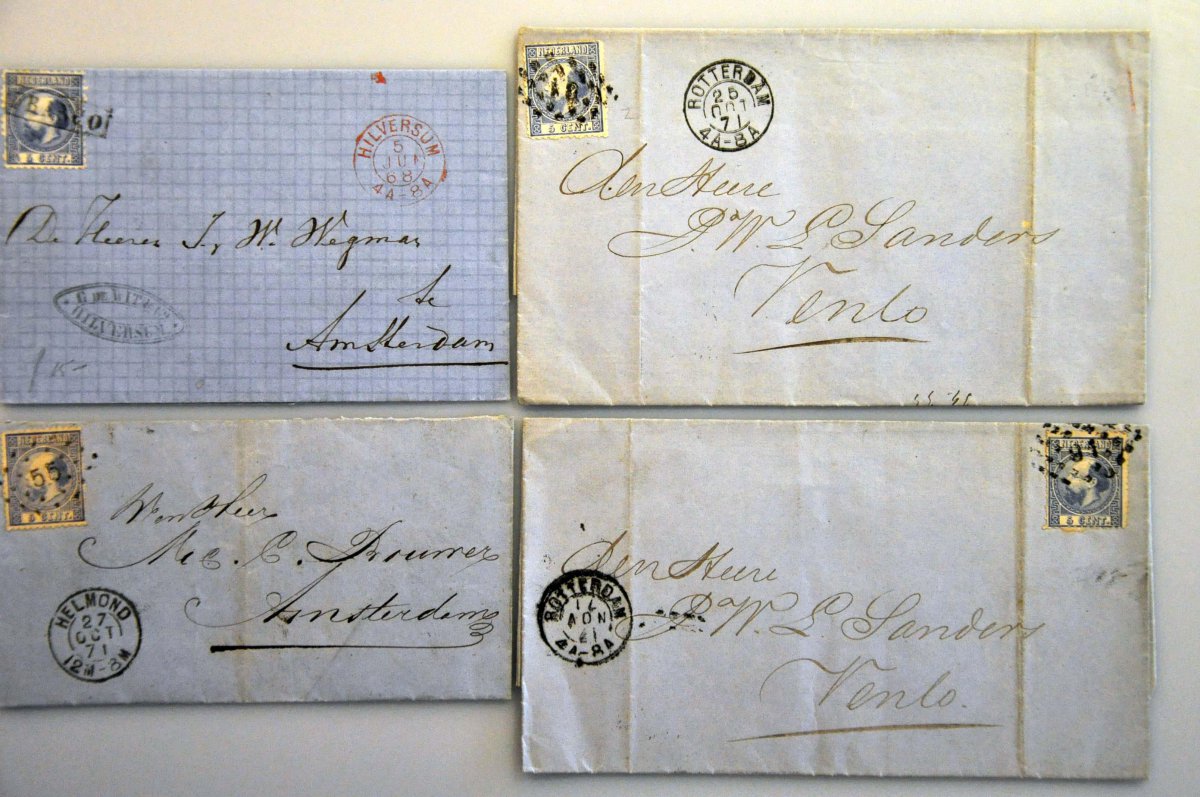 NEDERLAND
5 CENT.
HILVERSUM
5
JUN
68
4A-8A
De Heeren J. W. Wegmar
te
Amsterdam
HILVERSUM
NEDERLAND
5 CENT.
ROTTERDAM
25
OCT
71
4A-8A
den Heere
P. W. L. Sanders
Venlo
NEDERLAND
55
5 CENT.
HELMOND
27
OCT
71
12M-8M
Amsterdam
NEDERLAND
91
5 CENT.
ROTTERDAM
4A-8A
den Heere
P. W. L. Sanders
Venlo.